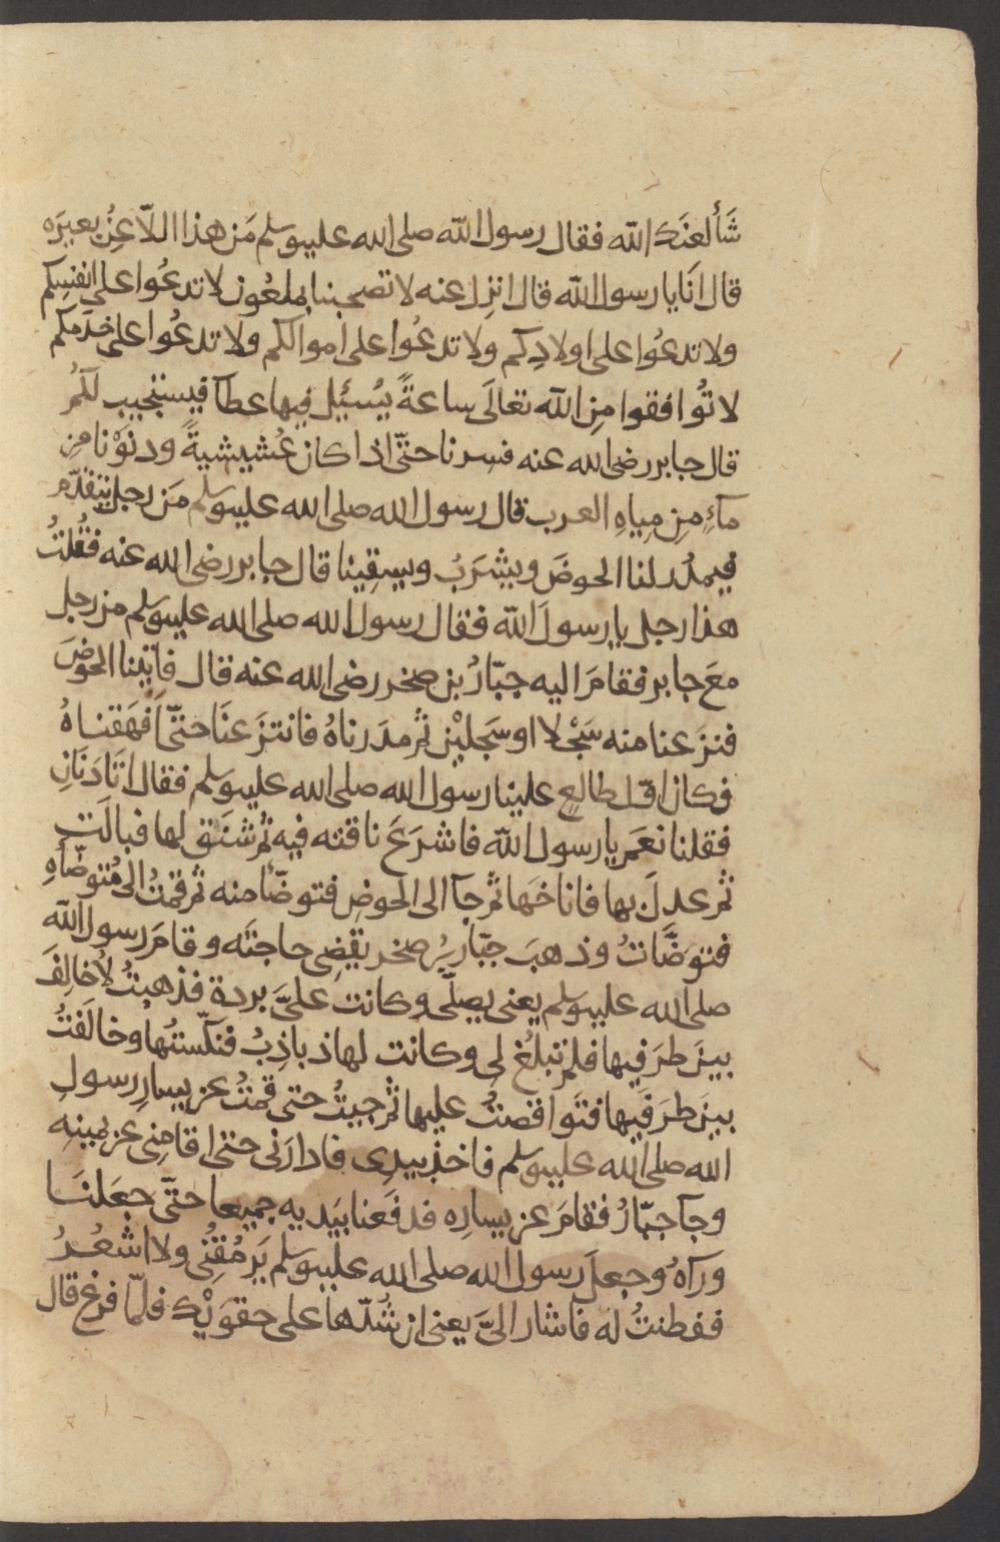 شَأْ لعنَك الله فقال رسول الله صلى الله عليه وسلم مَن هذا اللّاعِنُ بعيرَه
قال اَنَا يا رسول الله قال انزل عنه لا تصحبنا بملعُون لا تدعُوا على انفسِكم
ولا تدعُوا على اولادِكم ولا تدعُوا على اموالكم ولا تدعُوا على خدَمكم
لا تُوافقوا مِن الله تعالَى ساعةً يُسْئَل فيها عطآ فيستجيب لكُم
قال جابر رضى الله عنه فسرنا حتّى اذا كان عُشيشيةً ودنَوْنا مِن
مآءٍ مِن مِياهِ العرب قال رسول الله صلى الله عليه وسلم مَن رجل يتقدّم
فيمدُد لنا الحوضَ ويشرَبُ ويسقِينا قال جابر رضى الله عنه فقُلتُ
هذا رجل يا رسولَ الله فقال رسول الله صلى الله عليه وسلم من رجل
معَ جابر فقامَ اليه جبّارُ بن صخر رضى الله عنه قال فاتينا الحوضَ
فنزعنا منه سَجْلا او سَجلَيْن ثم مدَرناهُ فانتزعنَا حتّى اَفهَقناهُ
فكان اوّل طالعٍ علينا رسول الله صلى الله عليه وسلم فقال اَتَادَنَانِ
فقلنا نعَم يا رسول الله فاشرَعَ ناقته فيه ثم شَنَق لها فبالَت
ثم عدلَ بها فاناخَها ثم جآ الى الحوضِ فتوضّأ منه ثم قمتُ الى مُتوضّأهِ
فتوَضَّاتُ وذهبَ جبّار بنُ صخر يقضى حاجتَه وقامَ رسول الله
صلى الله عليه وسلم يعنى يصلّى وكانت علىَّ بردة فذهبتُ لاُخالِفَ
بينَ طرَفيها فلم تبلُغ لى وكانت لها ذباذِبُ فنكّستُها وخالَفتُ
بينَ طرَفَيها فتَواقصتُ عليها ثم جيتُ حتى قمتُ عن يسارِ رسول
الله صلى الله عليه وسلم فاخذ بيدِى فادارَنى حتى اقامنِى عن يمينِه
وجآ جبّارُ فقامَ عن يسارِه فدفَعنا بيَديه جميعا حتّى جعَلنَا
ورآهُ وجعلَ رسول الله صلى الله عليه وسلم يَرمُقُنِى ولا اشعُرُ
ففطنتُ له فاشار الىَّ يعنى ان شُدّها على حقوَيْك فلمّا فرغ قال